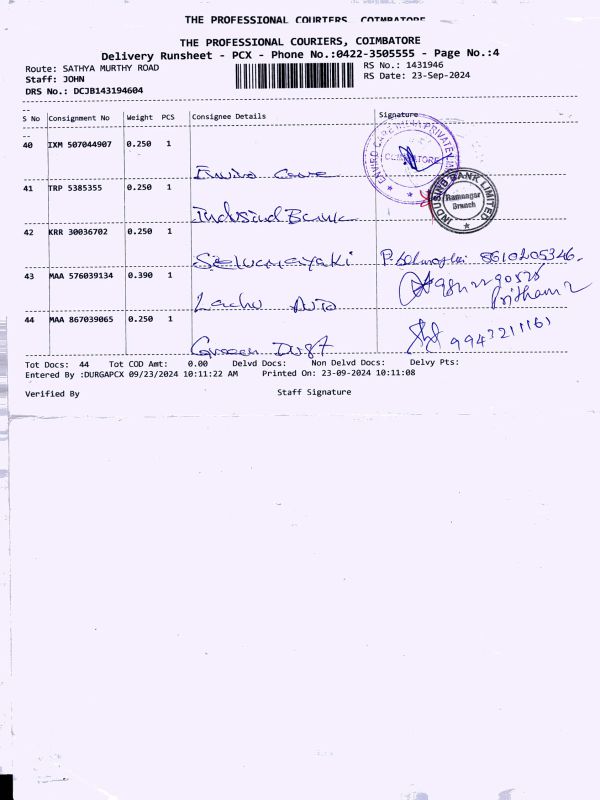 THE PROFESSIONAL COURIERS, COIMBATORE
THE PROFESSIONAL COURIERS, COIMBATORE
Delivery Runsheet - PCX - Phone No.:0422-3505555 - Page No.:4
Route: SATHYA MURTHY ROAD
RS No.: 1431946
Staff: JOHN
RS Date: 23-Sep-2024
DRS No.: DCJB143194604
S No Consignment No Weight PCS Consignee Details Signature
40 IXM 507044907 0.250 1
Enviro Care
ENVIRO CARE INDIA PRIVATE LIMITED
COIMBATORE
41 TRP 5385355 0.250 1
Indusind Bank
INDUSIND BANK LIMITED
Ramnagar
Branch
42 KRR 30036702 0.250 1
Selvanayaki 8610205346
43 MAA 576039134 0.390 1
Pritham
44 MAA 867039065 0.250 1
Green 9943211161
Tot Docs: 44 Tot COD Amt: 0.00 Delvd Docs: Non Delvd Docs: Delvy Pts:
Entered By :DURGAPCX 09/23/2024 10:11:22 AM Printed On: 23-09-2024 10:11:08
Verified By Staff Signature